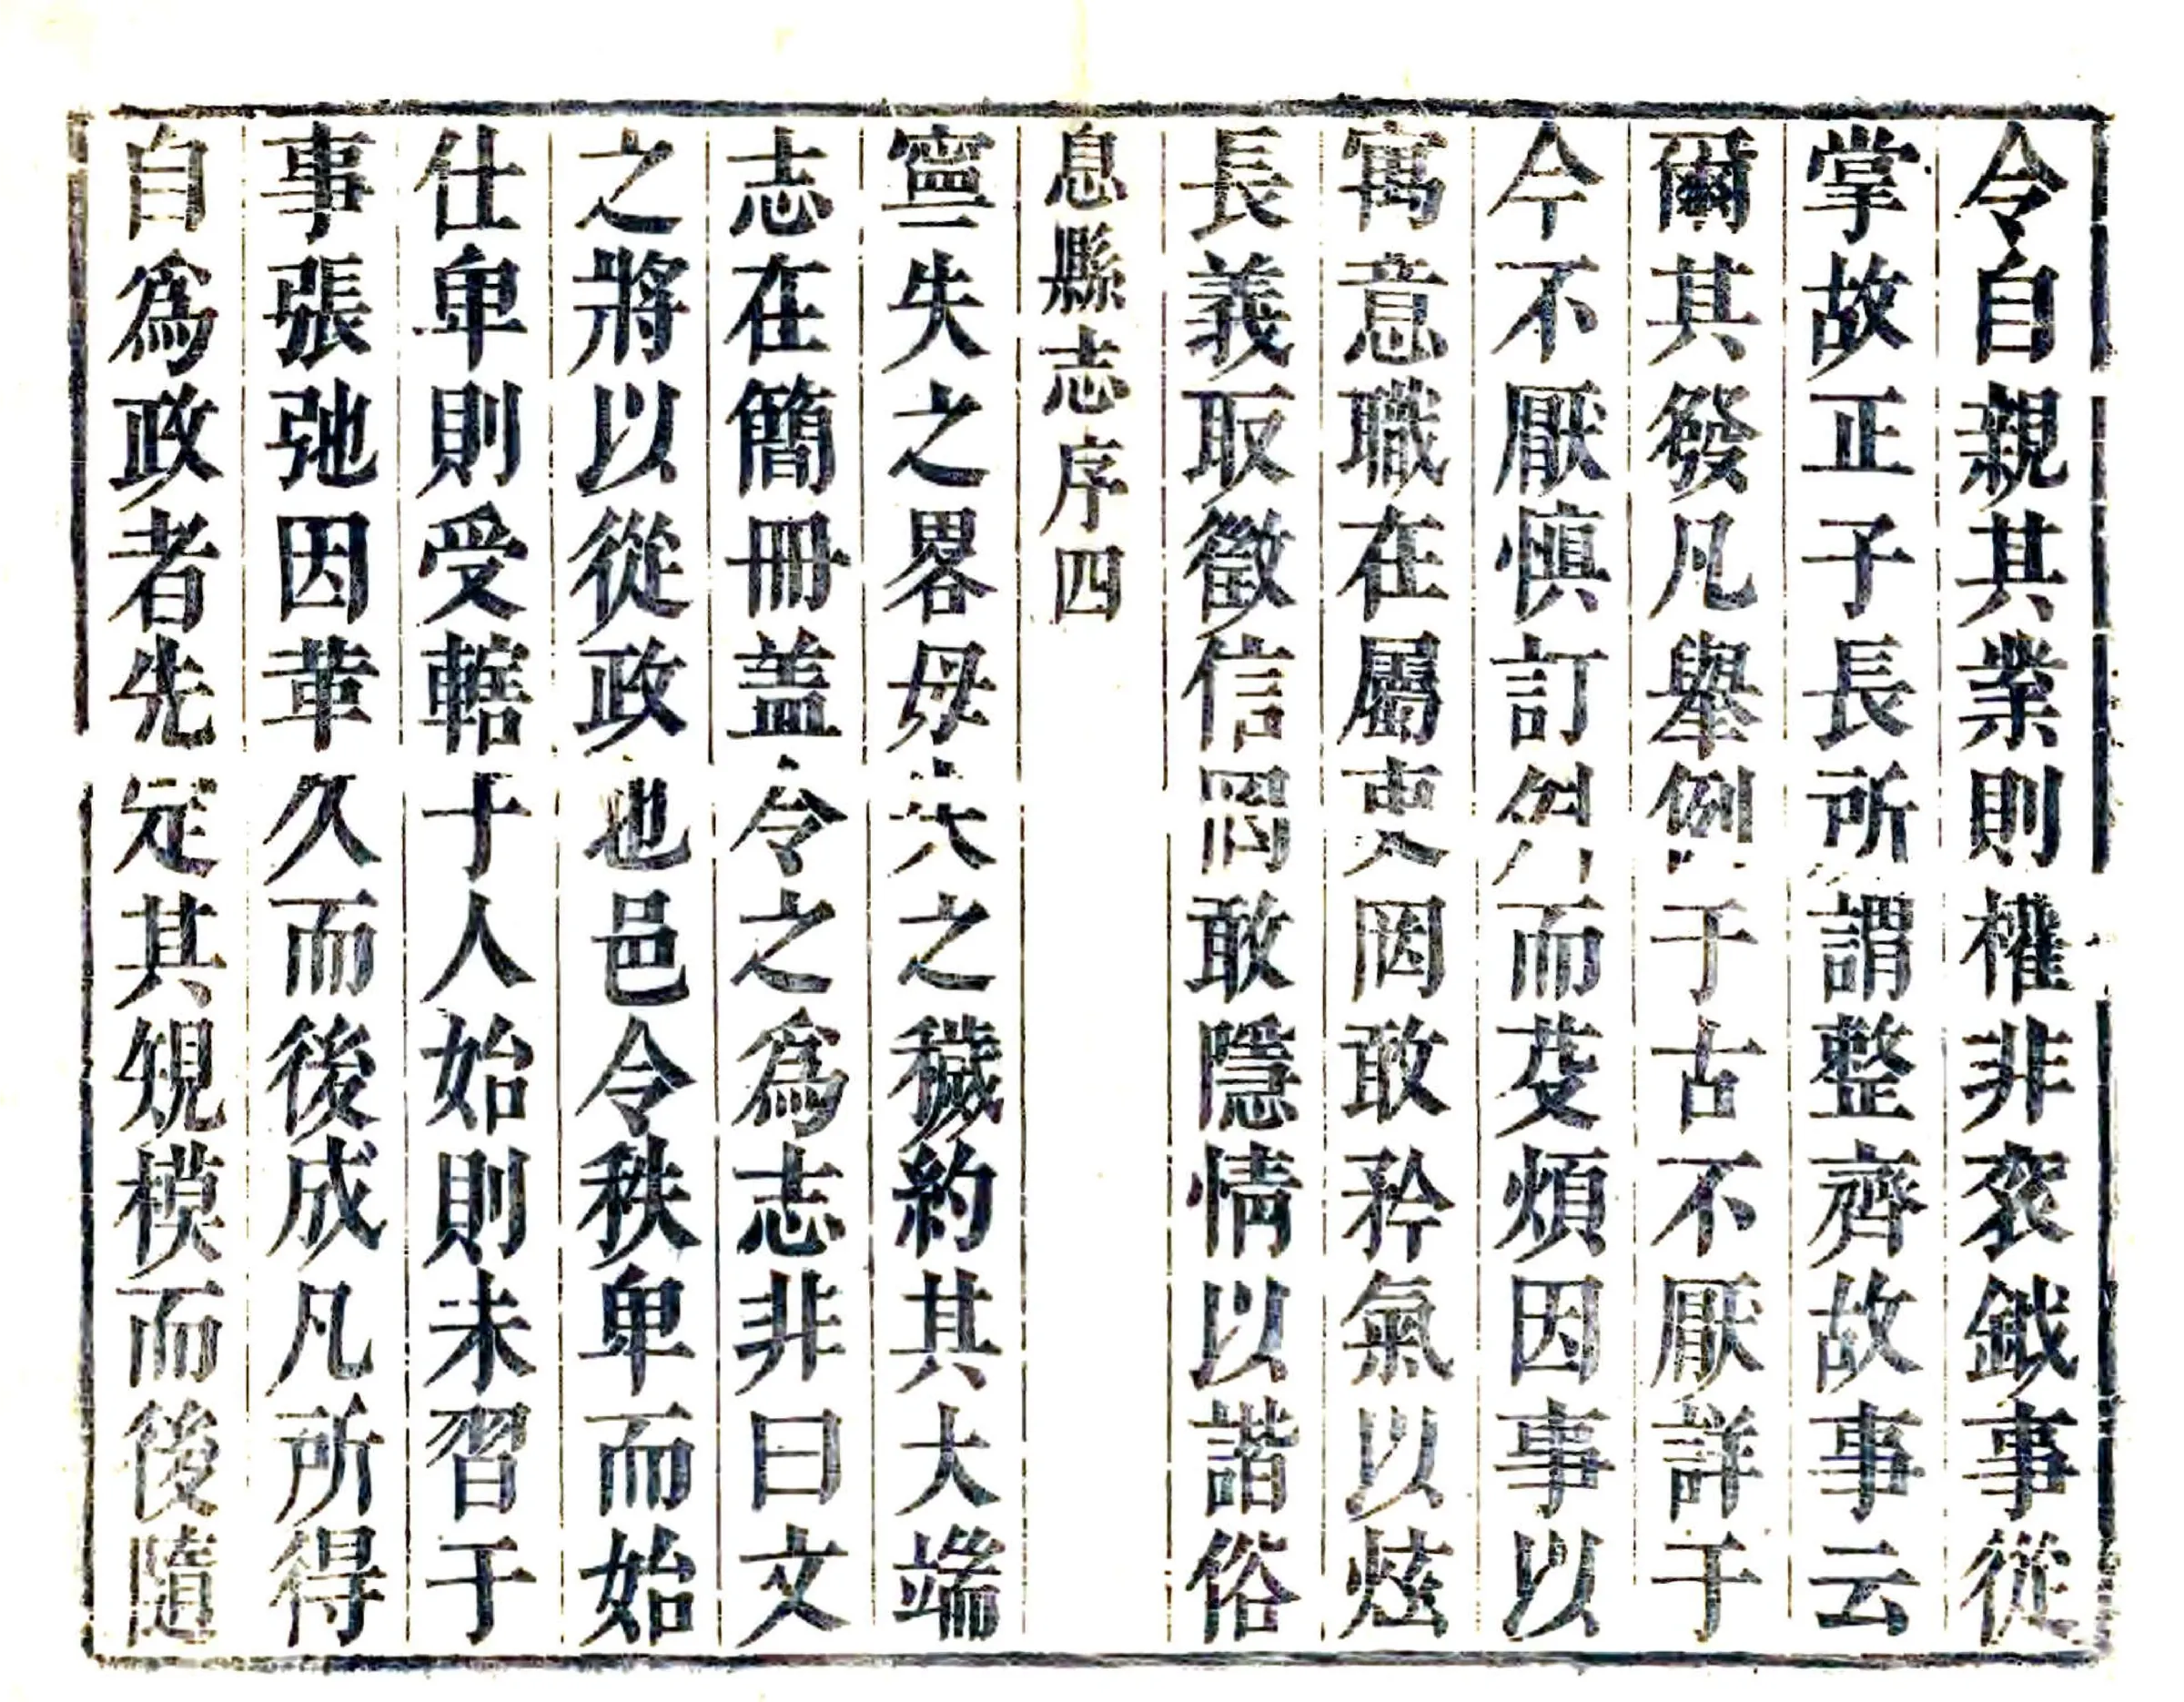 令自親其業則權非衮鉞事從
掌故正子長所謂整齊故事云
爾其發凡舉例于古不厭詳于
今不厭慎訂例而芟煩因事以
寓意職在屬吏罔敢矜氣以炫
長義取徵信罔敢隱情以諧俗
息縣志序四
寧失之畧毋失之穢約其大端
志在簡冊盖令之爲志非曰文
之將以從政也邑令秩卑而始
仕卑則受轄于人始則未習于
事張弛因革久而後成凡所得
自爲政者先定其規模而後隨